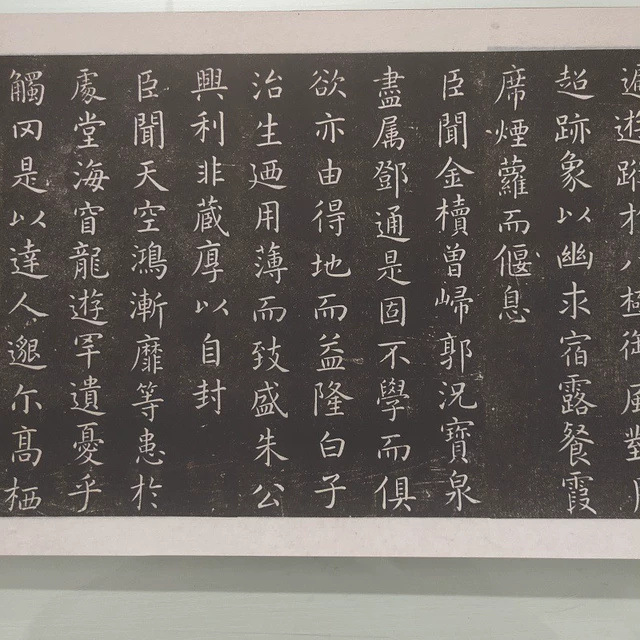 遊八極御風對
超跡象以幽求宿露餐霞
席煙蘿而偃息
臣聞金櫝曾歸郭況寶泉
盡属鄧通是固不學而俱
欲亦由得地而益隆白子
治生廼用薄而致盛朱公
興利非蔵厚以自封
臣聞天空鴻漸靡等患於
處堂海窅龍遊罕遺憂乎
觸罔是以達人邈尔高栖